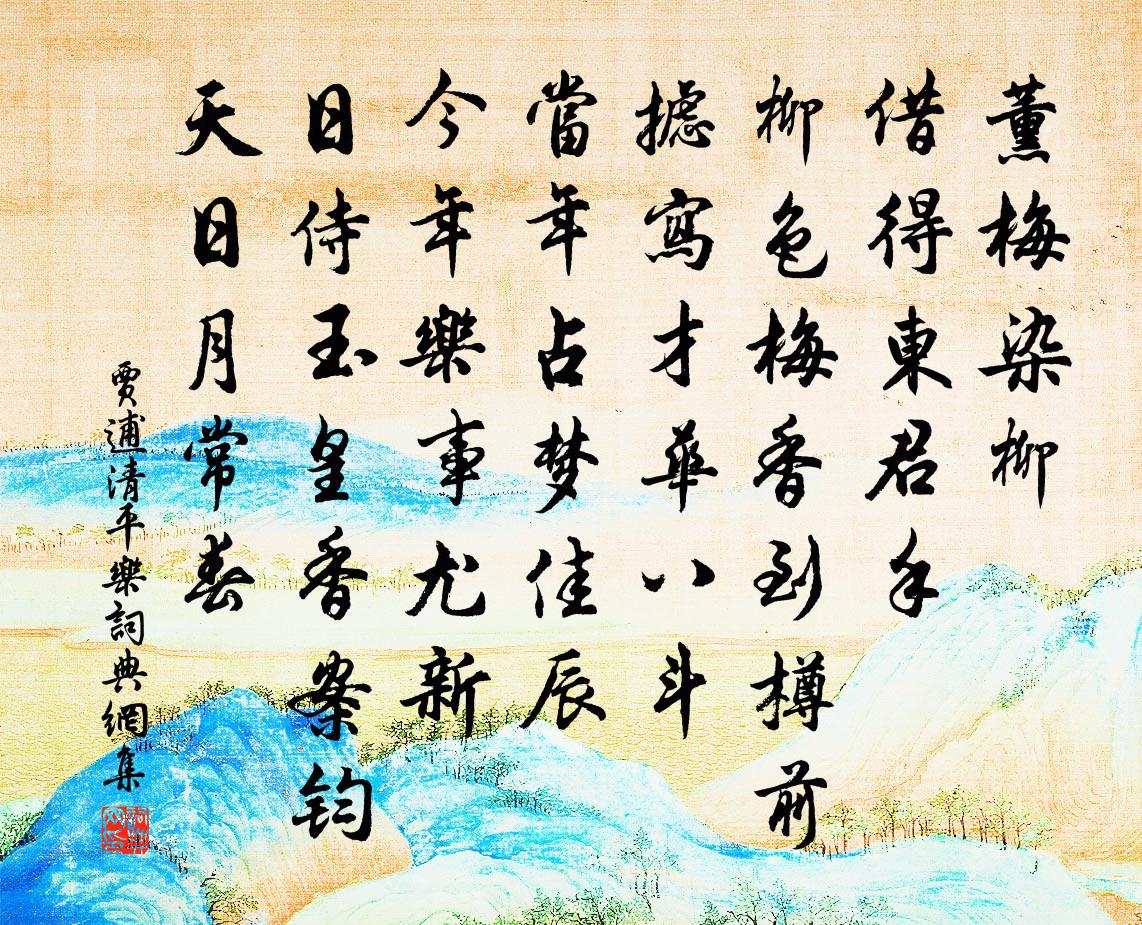 薰梅染柳
借得東君手
柳色梅香到樽前
攄寫才華八斗
當年占梦佳辰
今年樂事尤新
日侍玉皇香案
鈞天日月常春
賈逋清平樂詞典網集